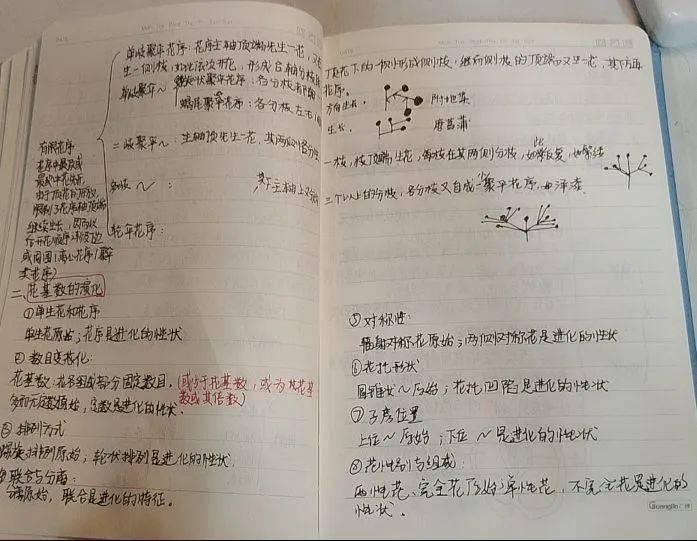 单歧聚伞花序：花序主轴顶端先生一花，
生一侧枝，如此依次开花，形成合轴分枝
单歧聚伞～ 螺状聚伞花序：各分枝
蝎尾聚伞花序：各分枝左右
有限花序
花序中最顶或
最中花先开
由于顶花的开放，
限制了花序轴顶端
继续生长，因而以
后开花顺序渐及边
或周围（离心花序）（聚伞
类花序）
二歧聚伞～：主轴顶先生一花，其两侧各分枝
多歧～：其下主轴上又
轮伞花序：
二、花基数的演化
①单生花和花序
单生花原始；花序是进化的性状
②数目变化：
花基数：花各组成部分固定数目，（或等于花基数，或为其花基
数或其倍数）
多而无定数原始，定数是进化的性状．
③排列方式
螺旋排列原始；轮状排列是进化的性状．
④联合与分离：
分离原始，联合是进化的特征。
顶花下的一侧形成侧枝，继而侧枝的顶端又生一花，其下方再
花序。
方向生长． 附地菜
生长． 唐菖蒲
一枝，枝顶端生花，每枝在其两侧分枝，如此反复，如
三个以上的分枝，各分枝又自成一聚伞花序．如泽漆．
⑤对称性：
辐射对称花原始；两侧对称花是进化的性状
⑥花托形状
圆锥状～原始；花托凹陷是进化的性状
⑦子房位置
上位～原始；下位～是进化的性状
⑧花性别与组成：
两性花、完全花原始；单性花，不完全花是进化的
性状．
Guangbo 广博